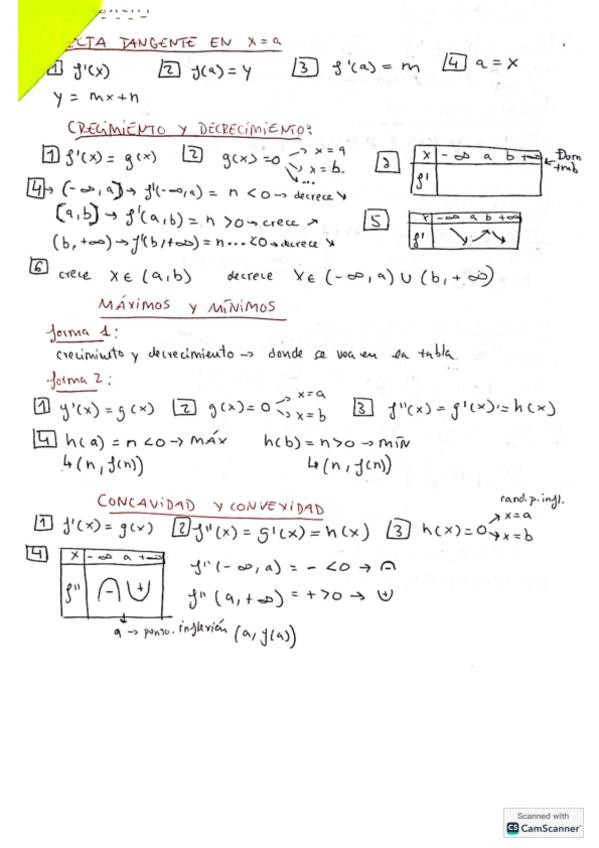 ECTA TANGENTE EN x=a
1 f'(x) 2 f(a)=y 3 f'(a)=m 4 a=x
y = mx+n
CRECIMIENTO Y DECRECIMIENTO:
1 f'(x)=g(x) 2 g(x)=0 → x=a → x=b. ... 3 x -∞ a b +∞ f' ← Dom tmb
4 → (-∞,a) → f'(-∞,a) = n < 0 → decrece ↘
(a,b) → f'(a,b) = n > 0 → crece ↗ 5 x -∞ a b +∞ f' ↘ ↗ ↘
(b,+∞) → f'(b,+∞) = n... < 0 → decrece ↘
6 crece x∈(a,b) decrece x∈(-∞,a) ∪ (b,+∞)
MÁXIMOS Y MÍNIMOS
forma 1:
crecimiento y decrecimiento → donde se vea en la tabla
forma 2:
1 f'(x)=g(x) 2 g(x)=0 → x=a → x=b 3 f''(x)=g'(x)=h(x)
4 h(a)=n<0 → MÁX h(b)=n>0 → MÍN
↳(n,f(n)) ↳(n,f(n))
CONCAVIDAD Y CONVEXIDAD
cand. p. infl.
1 f'(x)=g(x) 2 f''(x)=g'(x)=h(x) 3 h(x)=0 → x=a → x=b
4 x -∞ a +∞ f'' ∩ - ∪ +
f''(-∞,a) = - <0 → ∩
f''(a,+∞) = + >0 → ∪
a → punto. inflexión (a,f(a))
Scanned with
CS CamScanner